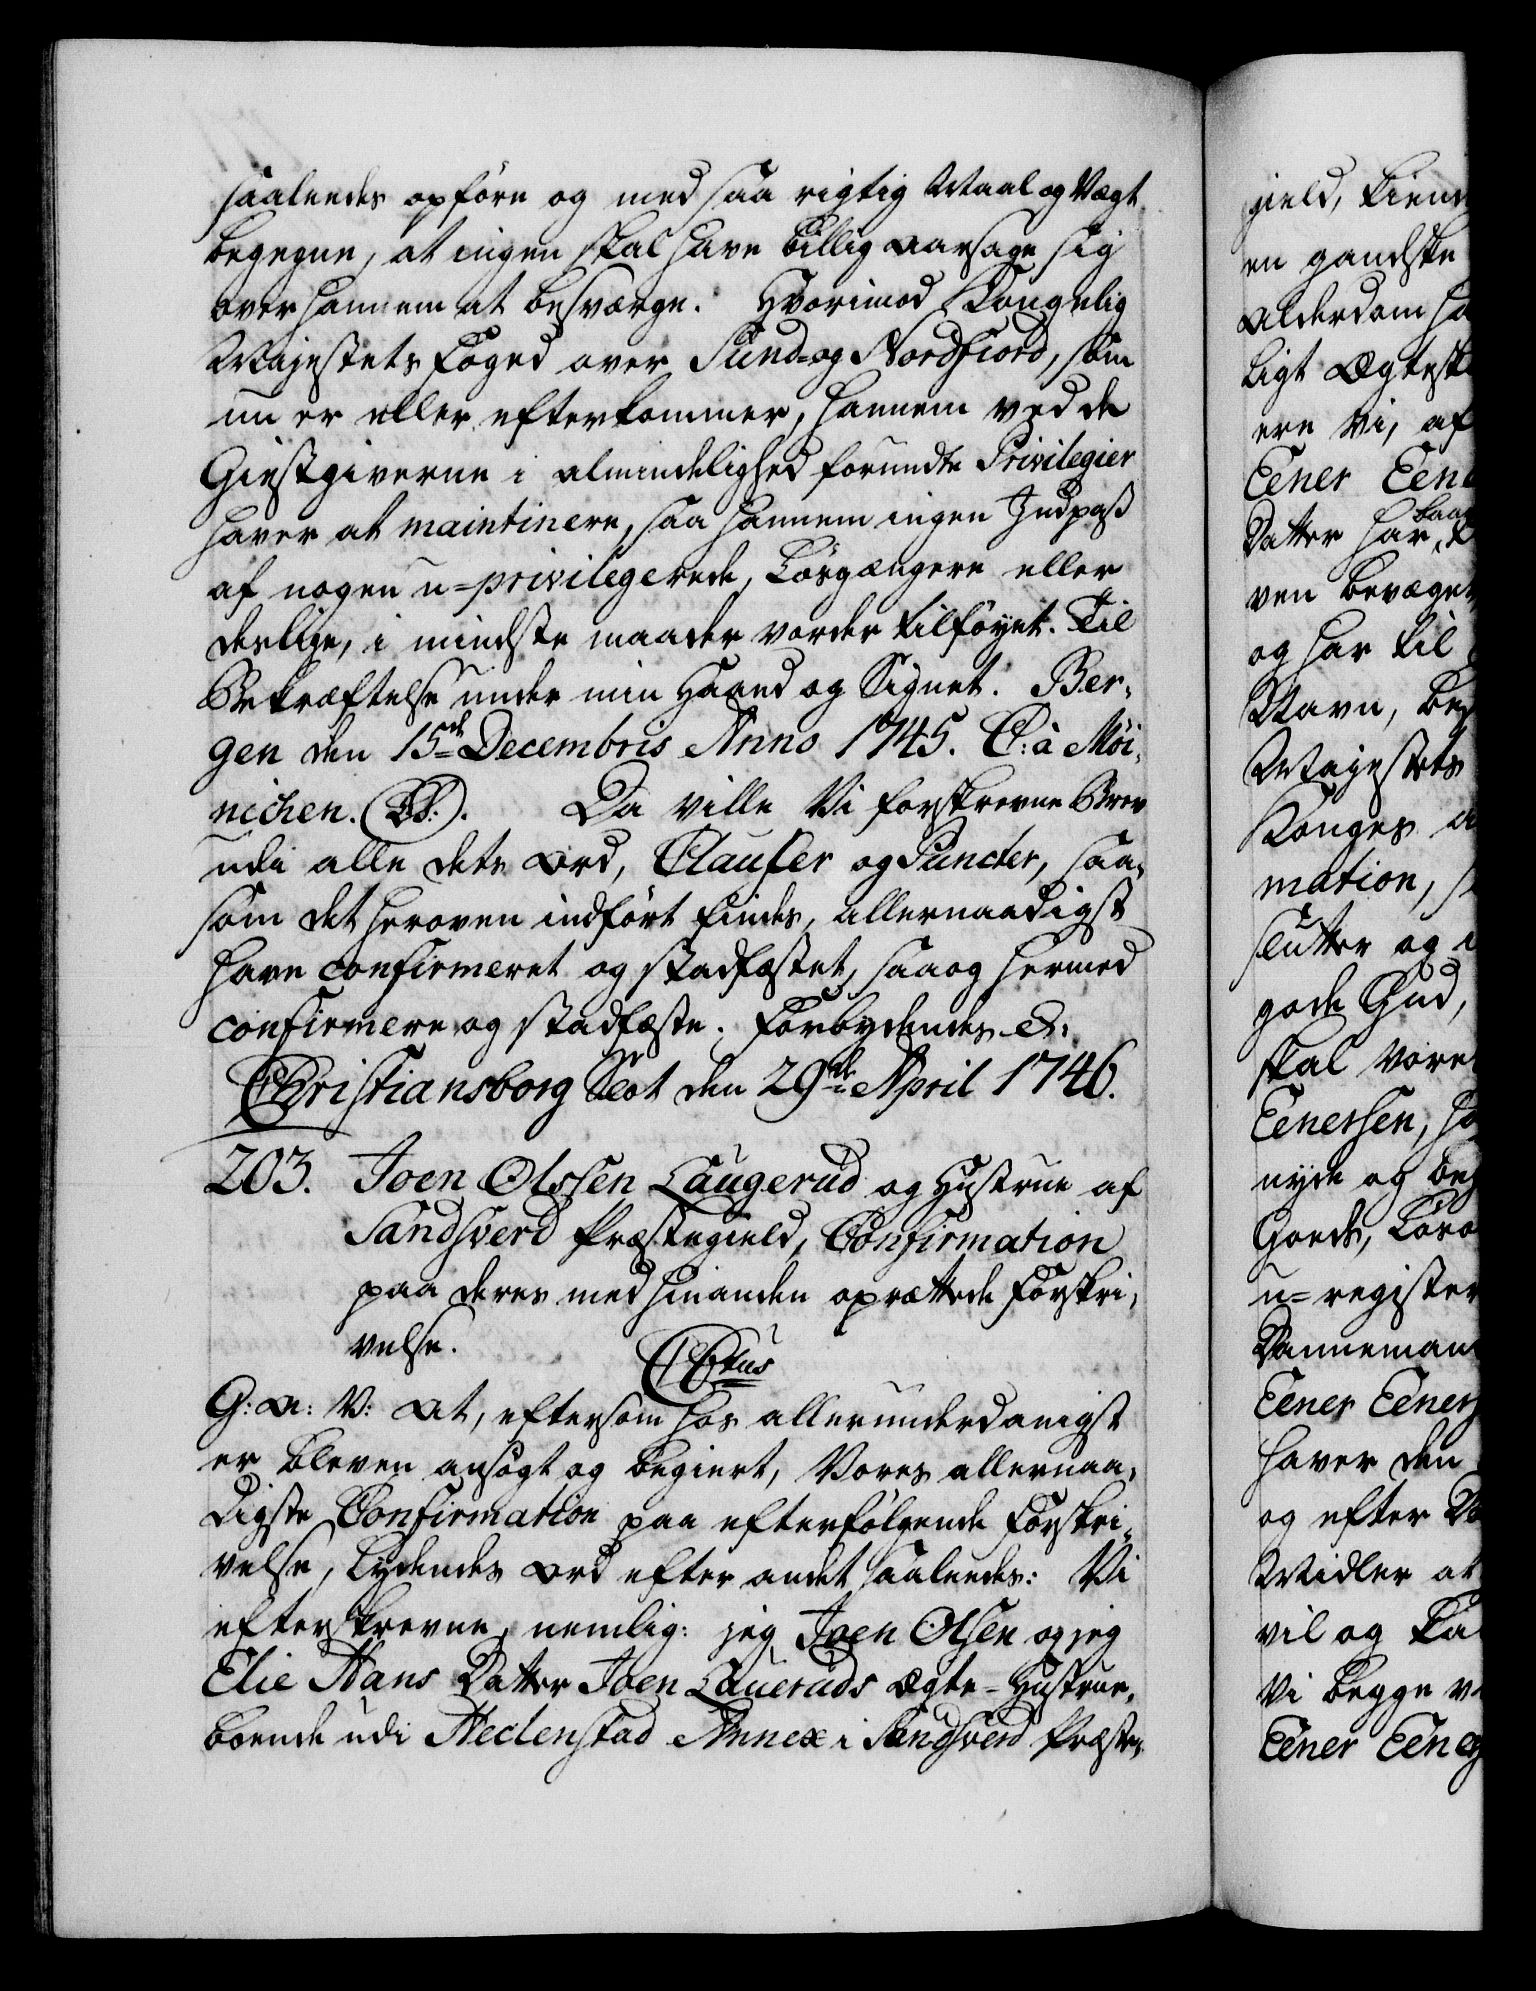 saaledes opføre og med saa rigtig Maal og Vægt
begegne, at ingen skal have billig Aarsage sig
over hannem at besværge. Hvorimod Kongelig
Majestets Foged over Sund- og Nordfiord, som
nu er eller efterkommer, hannem ved de
Giestgiverne i Almindelighed forundte Privilegier
haver at maintinere, saa hannem ingen Indpas
af nogen u=privilegerede, Løsgængere eller
deslige, i mindste maader vorder tilføyet. Til
Bekræftelse under min Haand og Signet. Ber-
gen den 15de Decembris Anno 1745. C: à Möi-
nichen. (LS:). Da ville Vi forskrevne Brev
udi alle dets Ord, Clausler og Puncter, saa-
som det heroven indført findes, allernaadigst
have confirmeret og stadfæstet, saa og hermed
confirmere og stadfæste. Forbydendes &.
Christiansborg Slot den 29de April 1746.
203. Joen Olssen Laugerud og Hustrue af
Sandsverd Præstegield, Confirmation
paa deres med hinanden oprættede Forskri-
velse.
G: A: V: At, eftersom hos allerunderdanigst
er bleven ansøgt og begiert, Vores allernaa-
digste Confirmation paa efterfølgende Forskri-
velse, lydendes Ord efter andet saaledes: Vi
efterskrevne, nemlig: jeg Joen Olsen og jeg
Elie Hans Datter Joen Laueruds Ægte=Hustrue,
boende udi Hedenstad Annex i Sandsverd Præste-
gield, kiend
en gandske
Alderdom ha
ligt Ægtesk
ere Vi, af
Eener Een
Datter har
ven bevæget
og har til
Navn, beg
Majestets
Konges
mation, s
slutter og
gode Gud,
skal Vore
Eenersen, ha
nyde og be
Goeds, Løs
u=register
Dannemæn
Eener Eeners
haver den
og efter
Midler at
vil og ka
Vi begge v
Eener Eeners